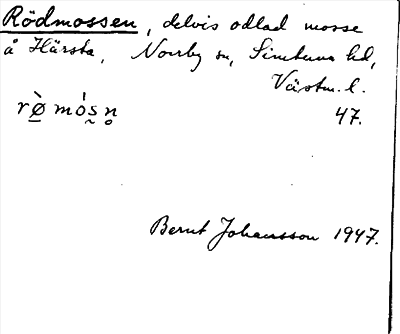 Rödmossen, delvis odlad mosse
å Härsta, Norrby sn, Simtuna hd,
Västm. l.
rø̀ mósn̥ 47.
Bernt Johansson 1947.